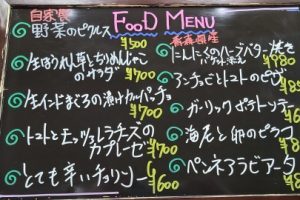 自家製
FOOD MENU
野菜のピクルス
¥500
生ほうれん草とちりめんじゃこ
のサラダ ¥700
生インドまぐろの漬けカルパッチョ
¥700
トマトとモッツァレラチーズの
カプレーゼ ¥700
とても辛いチョリソー
¥600
青森県産
にんにくのハーブバター焼き
¥980
アンチョビとトマトのピザ
ガーリックポテトフライ
海老と卵の
ペンネアラビアータ